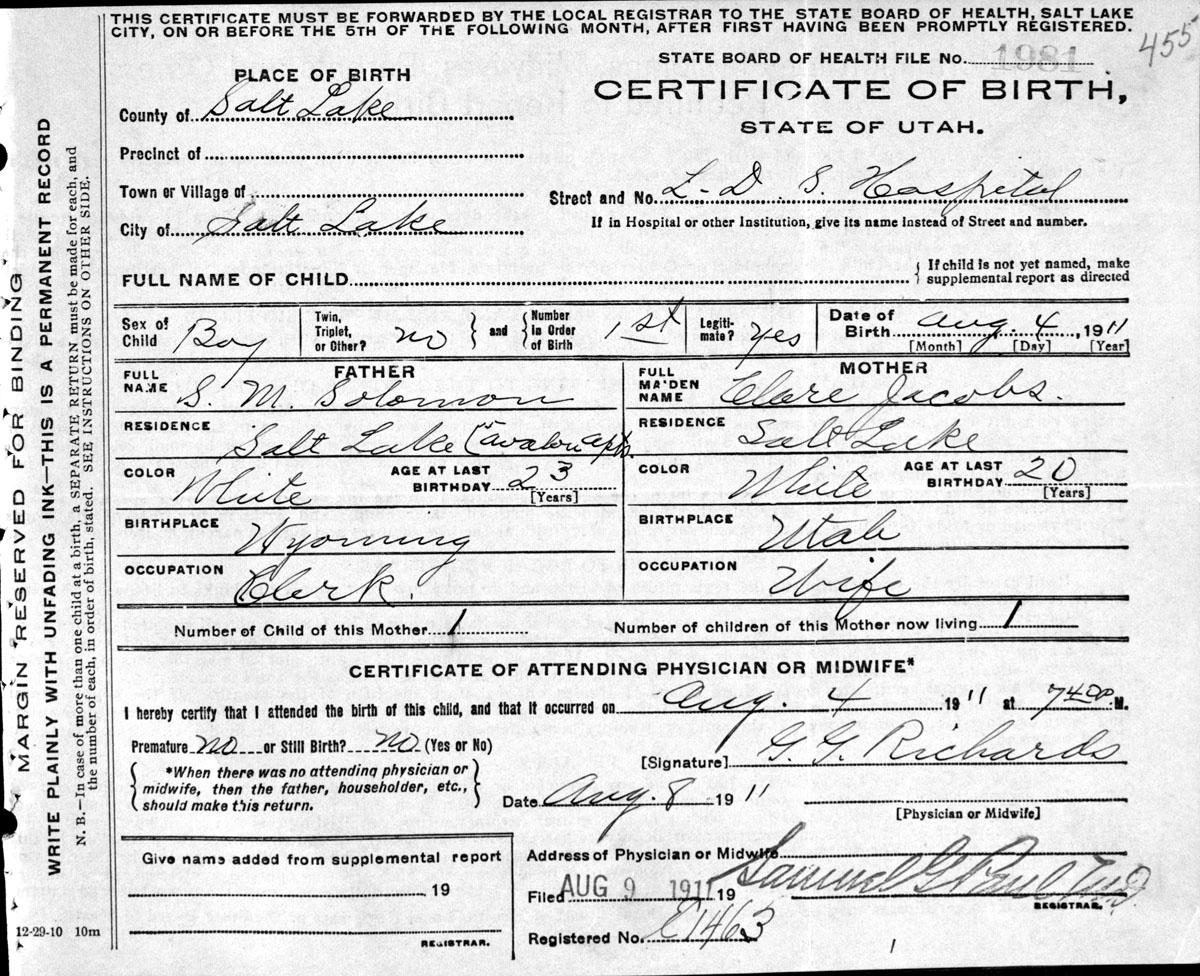 THIS CERTIFICATE MUST BE FORWARDED BY THE LOCAL REGISTRAR TO THE STATE BOARD OF HEALTH, SALT LAKE
CITY, ON OR BEFORE THE 5TH OF THE FOLLOWING MONTH, AFTER FIRST HAVING BEEN PROMPTLY REGISTERED.
455
STATE BOARD OF HEALTH FILE No. 1981
CERTIFICATE OF BIRTH,
STATE OF UTAH.
PLACE OF BIRTH
County of Salt Lake
Precinct of
Town or Village of
City of Salt Lake
Street and No. L.D.S. Hospital
If in Hospital or other Institution, give its name instead of Street and number.
FULL NAME OF CHILD
{ If child is not yet named, make
supplemental report as directed
Sex of Child Boy
Twin, Triplet, or Other? no } and { Number in Order of Birth 1st
Legiti-mate? yes
Date of Birth Aug. 4, 1911
[Month] [Day] [Year]
FATHER
FULL NAME S. M. Solomon
RESIDENCE Salt Lake
COLOR White AGE AT LAST BIRTHDAY 23
[Years]
BIRTHPLACE Wyoming
OCCUPATION Clerk
MOTHER
FULL MAIDEN NAME Clare Jacobs.
RESIDENCE Salt Lake
COLOR White AGE AT LAST BIRTHDAY 20
[Years]
BIRTHPLACE Utah
OCCUPATION Wife
Number of Child of this Mother 1 Number of children of this Mother now living 1
CERTIFICATE OF ATTENDING PHYSICIAN OR MIDWIFE*
I hereby certify that I attended the birth of this child, and that it occurred on Aug. 4 1911 at M.
Premature no or Still Birth? no (Yes or No)
{ *When there was no attending physician or
midwife, then the father, householder, etc.,
should make this return. }
[Signature] G. G. Richards
Date Aug. 8 1911
[Physician or Midwife]
Give name added from supplemental report
19
REGISTRAR.
Address of Physician or Midwife
Filed AUG 9 1911 19 Samuel G. Paul
REGISTRAR.
Registered No. 1463
12-29-10 10m
MARGIN RESERVED FOR BINDING
WRITE PLAINLY WITH UNFADING INK—THIS IS A PERMANENT RECORD
N. B.—In case of more than one child at a birth, a SEPARATE RETURN must be made for each, and
the number of each, in order of birth, stated. SEE INSTRUCTIONS ON OTHER SIDE.